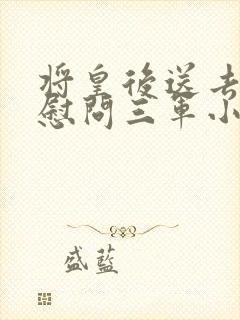 將皇後送去
慰問三軍小
盛藍